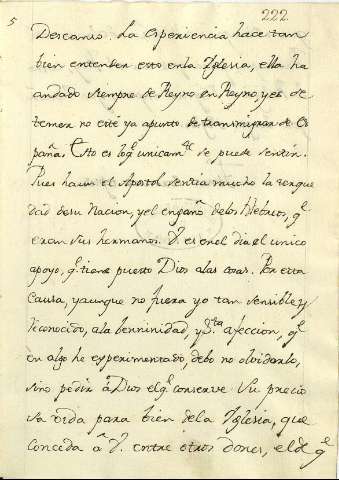 5 222
Descanso. La esperiencia hace tan
bien entender esto en la Yglesia, ella ha
andado siempre de Reyno en Reyno, y es de
temer no esté ya apunto de transmigrar de Es
paña. Esto es lo q.e unicam.te se puede sentir.
Pues haun el Apostol sentia mucho la
dad de su Nacion, y el engaño de los Hebreos, q.e
eran sus hermanos. V. es en el dia el unico
apoyo, q.e tiene puesto Dios a las cosas. Por esta
Causa, y aunque no fuera yo tan sensible y
reconocido, a la benninidad, y afeccion, q.e
en algo he esperimentado, debo no olvidarlo,
sino pedir á Dios el q.e conserve Su precio
sa vida para bien de la Yglesia, que
conceda a V. entre otros dones, el de q.e